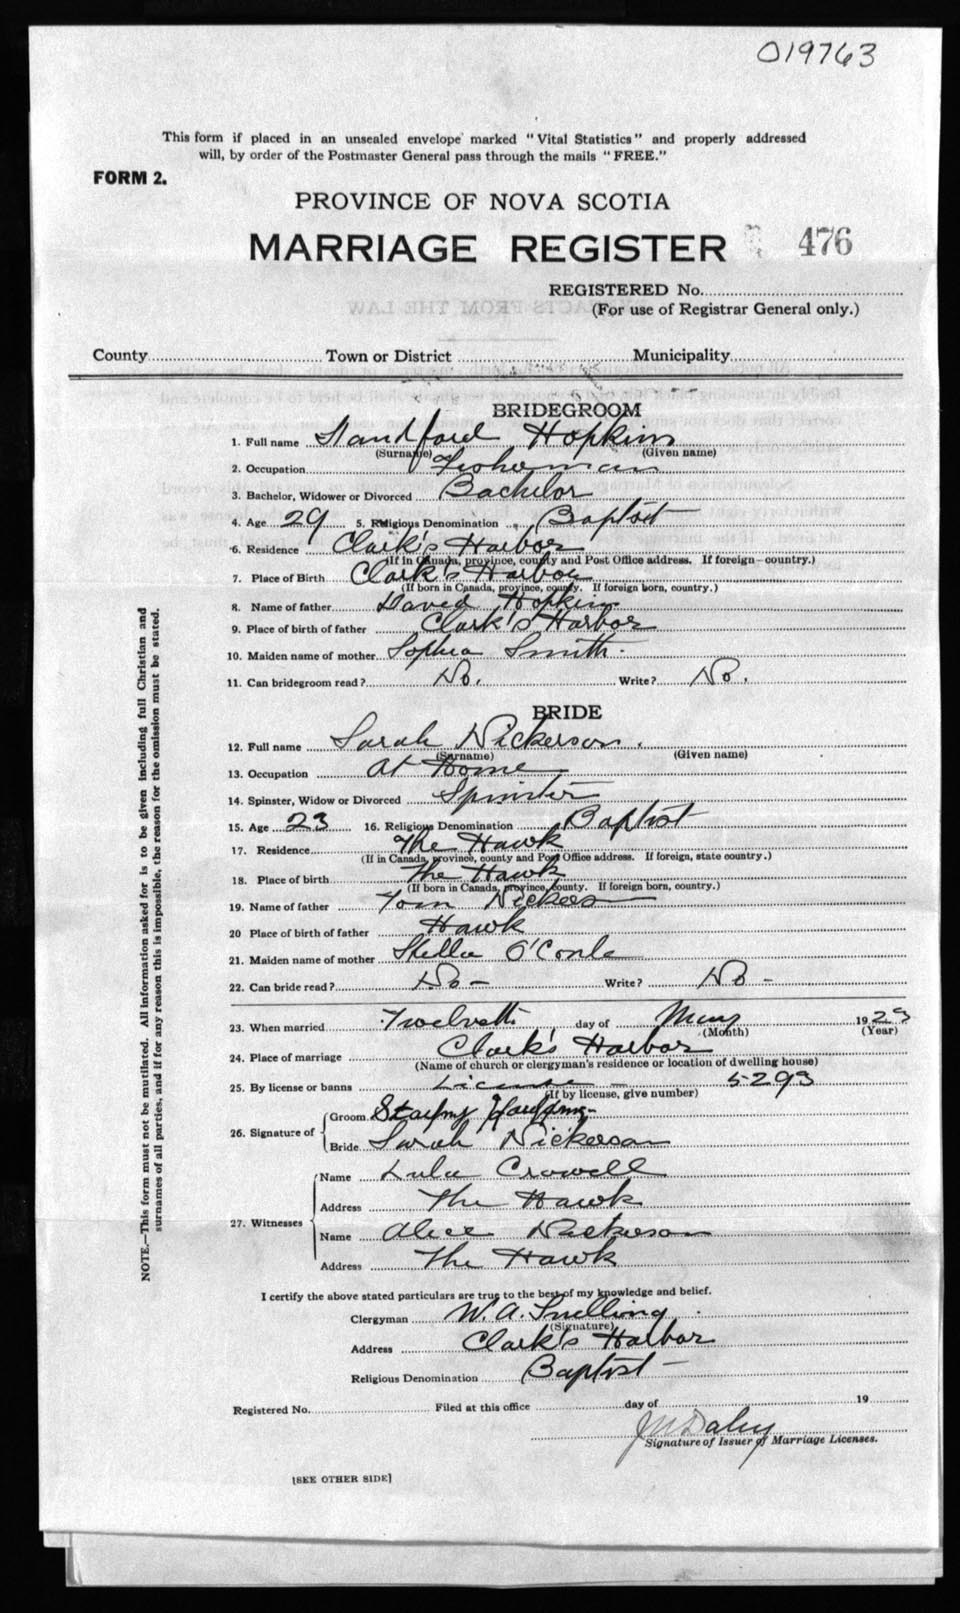 019763
This form if placed in an unsealed envelope marked "Vital Statistics" and properly addressed
will, by order of the Postmaster General pass through the mails "FREE."
FORM 2.
PROVINCE OF NOVA SCOTIA
MARRIAGE REGISTER 476
REGISTERED No.
(For use of Registrar General only.)
County Town or District Municipality
BRIDEGROOM
1. Full name Standford Hopkins
(Surname) (Given name)
2. Occupation Fisherman
3. Bachelor, Widower or Divorced Bachelor
4. Age 29 5. Religious Denomination Baptist
6. Residence Clark's Harbor
(If in Canada, province, county and Post Office address. If foreign—country.)
7. Place of Birth Clark's Harbor
(If born in Canada, province, county. If foreign born, country.)
8. Name of father David Hopkins
9. Place of birth of father Clark's Harbor
10. Maiden name of mother Sophia Smith.
11. Can bridegroom read? No. Write? No.
BRIDE
12. Full name Sarah Nickerson.
(Surname) (Given name)
13. Occupation At Home
14. Spinster, Widow or Divorced Spinster
15. Age 23 16. Religious Denomination Baptist
17. Residence The Hawk
(If in Canada, province, county and Post Office address. If foreign, state country.)
18. Place of birth The Hawk
(If born in Canada, province, county. If foreign born, country.)
19. Name of father Tom Nickers
20 Place of birth of father Hawk
21. Maiden name of mother O'Conle
22. Can bride read? No - Write? No -
23. When married Twelveth day of May 1923
(Month) (Year)
24. Place of marriage Clark's Harbor
(Name of church or clergyman's residence or location of dwelling house)
25. By license or banns License - 5293
(If by license, give number)
26. Signature of Groom
Bride Sarah Nickerson
27. Witnesses Name Lula Crowell
Address The Hawk
Name Alice Nickerson
Address The Hawk
I certify the above stated particulars are true to the best of my knowledge and belief.
Clergyman W. A. Snelling.
(Signature)
Address Clark's Harbor
Religious Denomination Baptist -
Registered No. Filed at this office day of 19
Daley
Signature of Issuer of Marriage Licenses.
[SEE OTHER SIDE]
NOTE.—This form must not be mutilated. All information asked for is to be given including full Christian and
surnames of all parties, and if for any reason this is impossible, the reason for the omission must be stated.